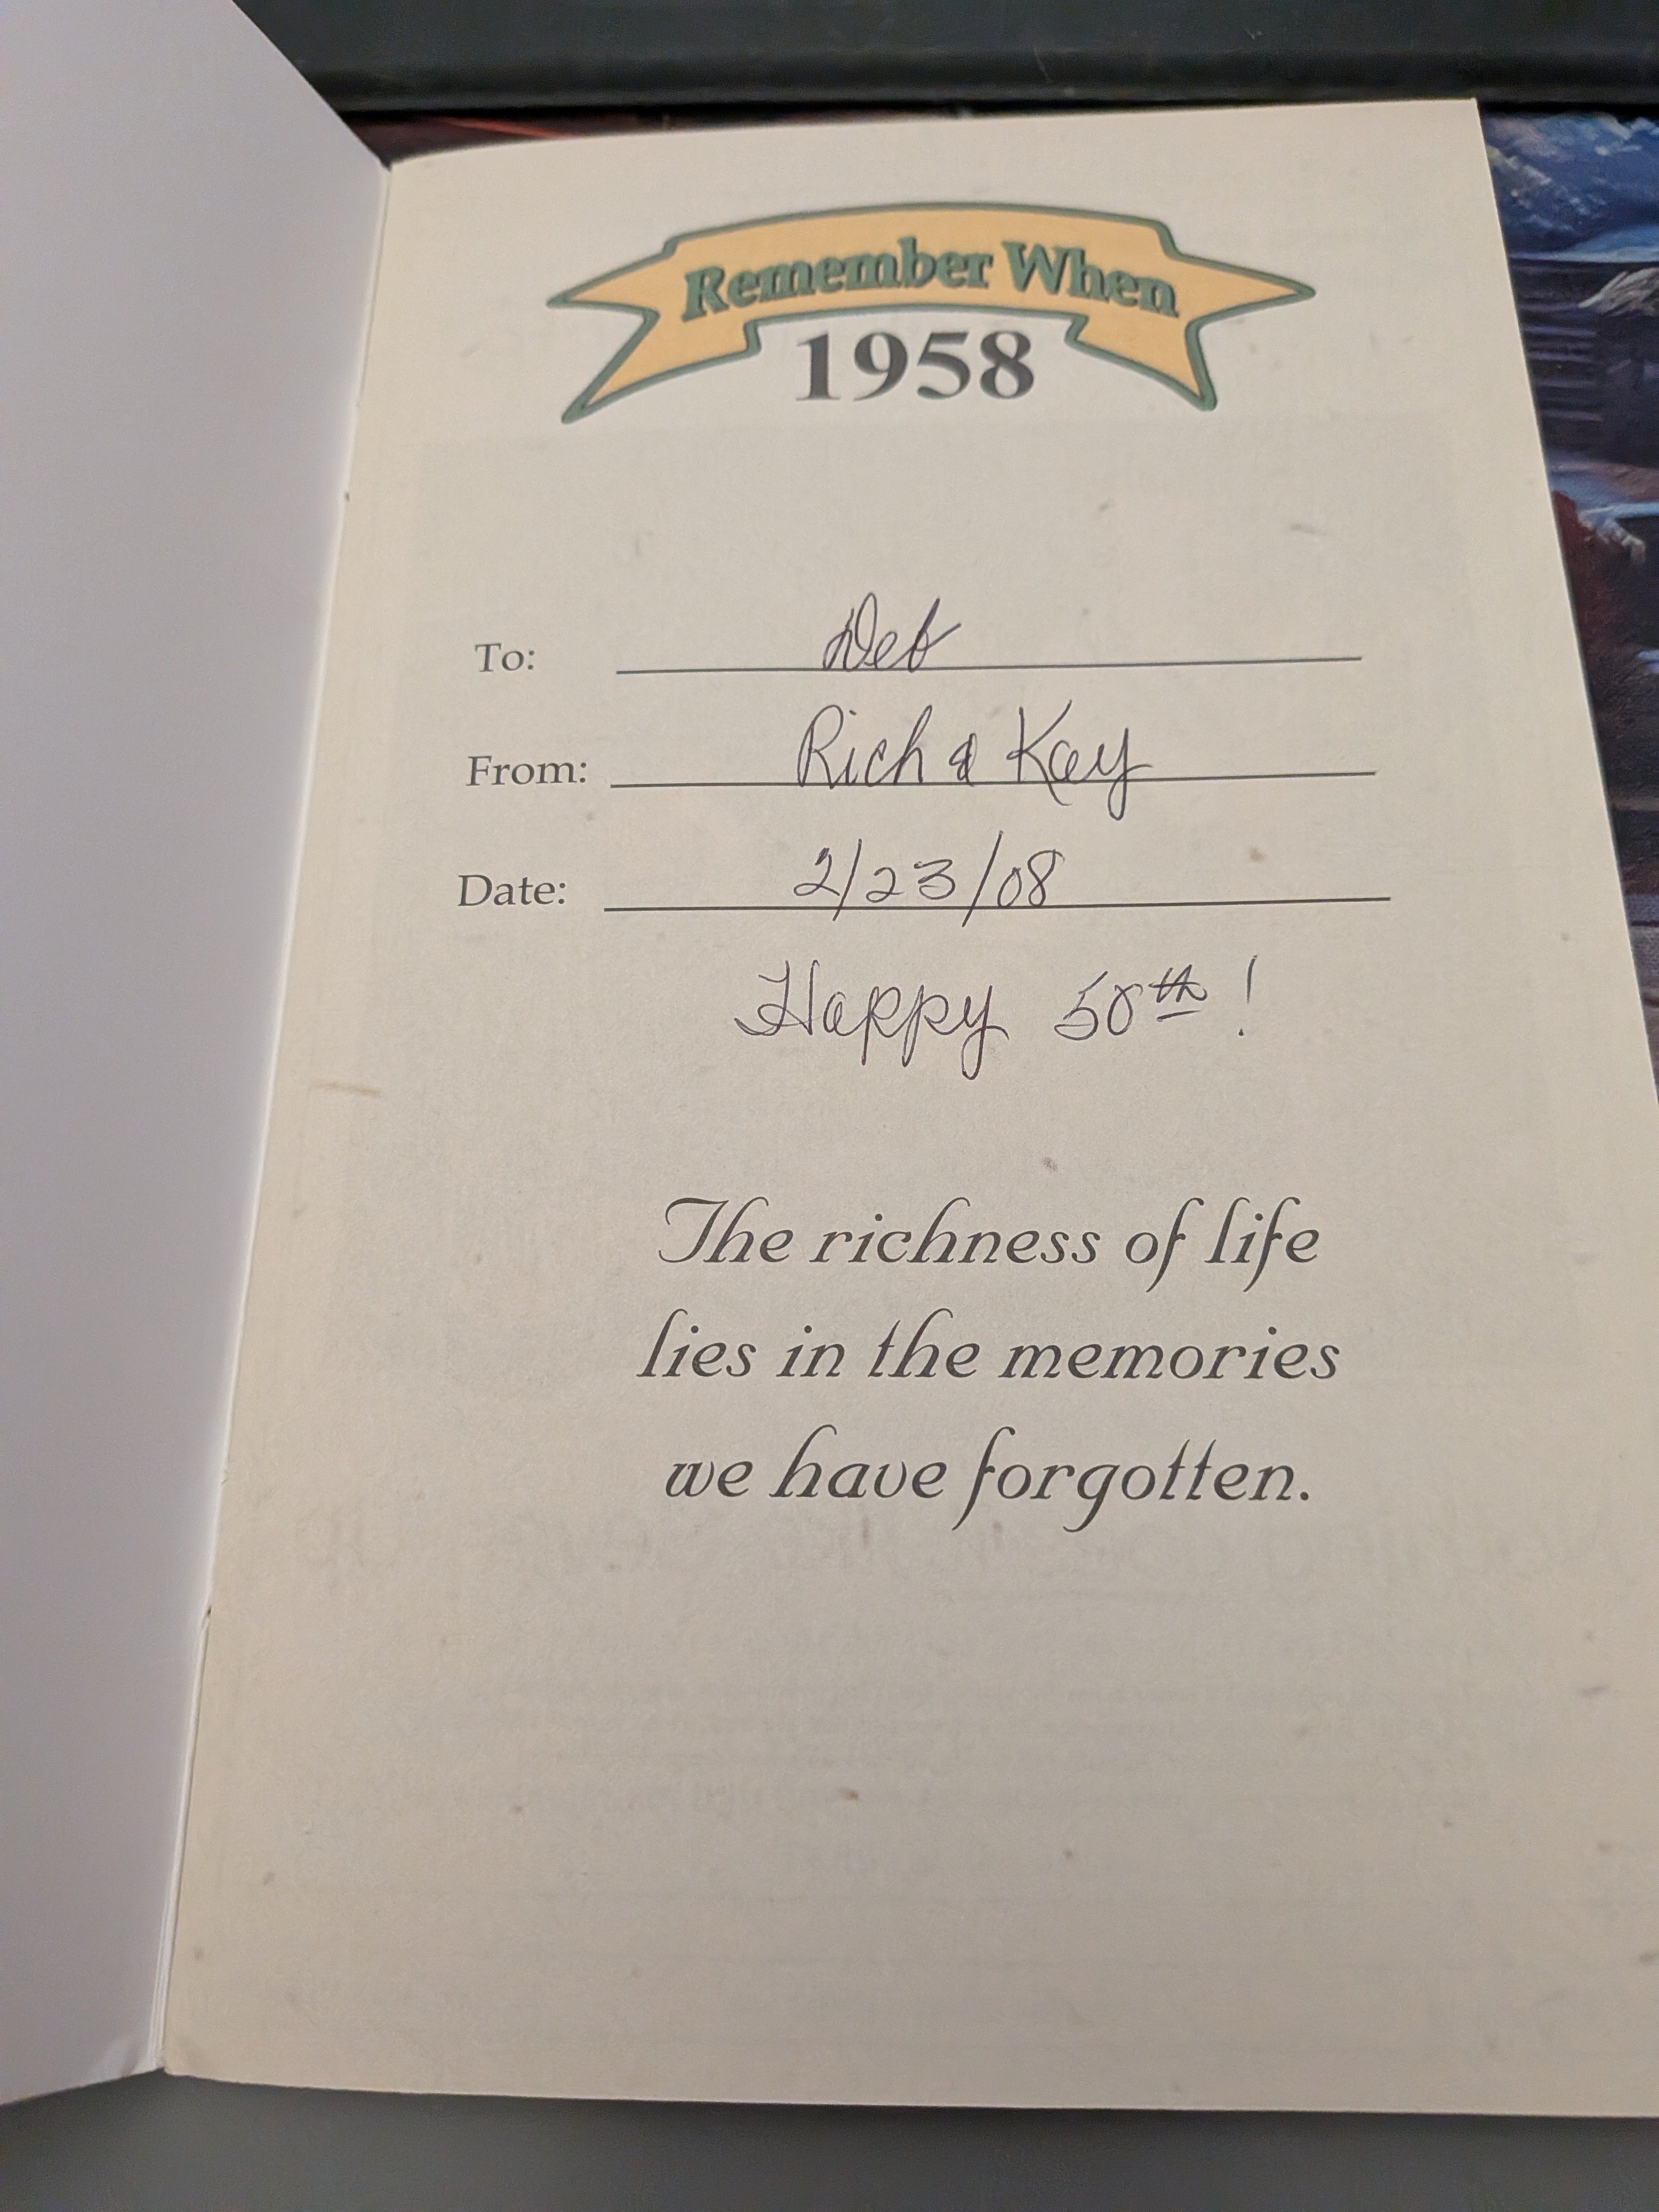 Remember When
1958
To: Deb
From: Rich & Kay
Date: 2/23/08
Happy 50th!
The richness of life
lies in the memories
we have forgotten.